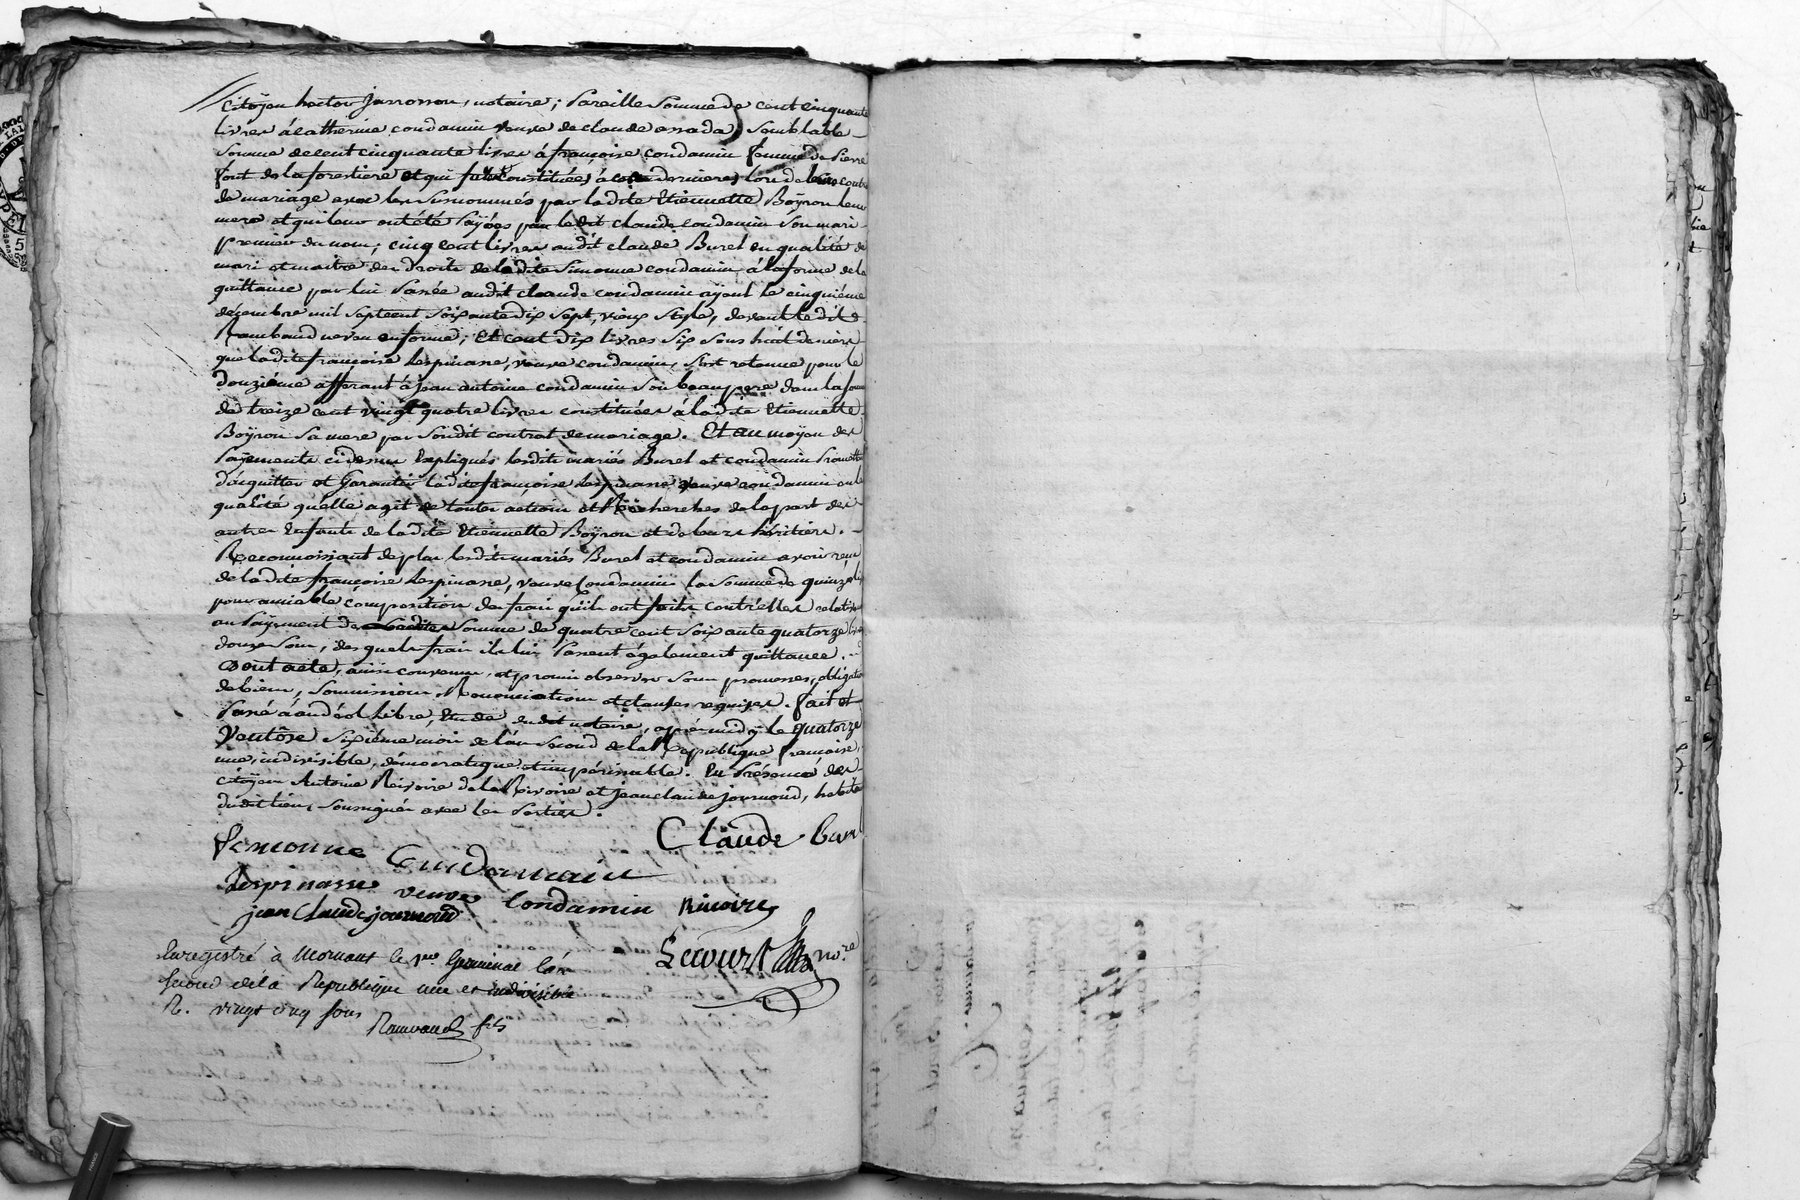 citoyen hector jarrosson, notaire; Pareille Somme de cent cinquante
livres à catherine condamin veuve de claude assada; Semblable
Somme de cent cinquante livres à françoise condamin femme de Pierre
font de la forestiere et qui furent constituées à ces dernieres lors de leurs contr
de mariage avec les susnommés par ladite Etiennette Boÿron leur
mere et qui leur ont été Payées par ledit claude condamin Son mari
premier du nom; cinq cent livres audit claude Burel en qualité de
mari et maitre des Droits de ladite Simonne condamin, à la forme de la
quittance par lui Passée audit claude condamin ayeul le cinquiéme
décembre mil Septcent Soixante dix Sept, vieux Style, devant ledit
Rambaud neveu en forme; Et cent dix livres Six Sous huit deniers
que ladite françoise Lespinasse, veuve condamin, S'est retenue pour le
douziéme afferant à jean antoine condamin Son beaupere dans la som
de treize cent vingt quatre livres constituées à ladite Etiennette
Boÿron Sa mere par Sondit contrat de mariage. Et au moÿen des
Payements cidessus Expliqués lesdits mariés Burel et condamin Promette
d'acquitter et Garantir ladite françoise Lespinasse veuve condamin en la
qualité qu'elle agit de toutes actions et Recherches de la part des
autres Enfants de ladite Etiennette Boÿron et de leurs héritiers.
Reconnoissant de plus lesdits mariés Burel et condamin avoir reçu
de ladite françoise Lespinasse, veuve Condamin la Somme de quinze liv
pour amiable composition des frais qu'ils ont faits contr'elles relatifs
au Payement de ladite Somme de quatre cent Soixante quatorze livres
douze Sous, des quels frais ils lui Passent également quittance.
Dont acte, ainsi convenu, et promis observer Sous promesses, obligation
de biens, Soumissions Renonciations et clauses requises. fait et
Passé à andéol libre, Etude dudit notaire, après midÿ le quatorze
Ventôse Sixiéme mois de l'an Second de la République francoise,
une, indivisible, démocratique et impérissable. En Présence des
citoÿens Antoine Rivoire de la Rivoire et jean claude journoud, habita
dudit lieu, Soussignés avec les Parties.
Semonne Condamin Claude burel
Lespinasse veuve Condamin Rivoire
jean Claude journoud
Lecourt nore
Enregistré à Mornant le 1er Germinal l'an
Second de la République une et indivisible
R. vingt cinq sous
Rambaud fils
FRANCE